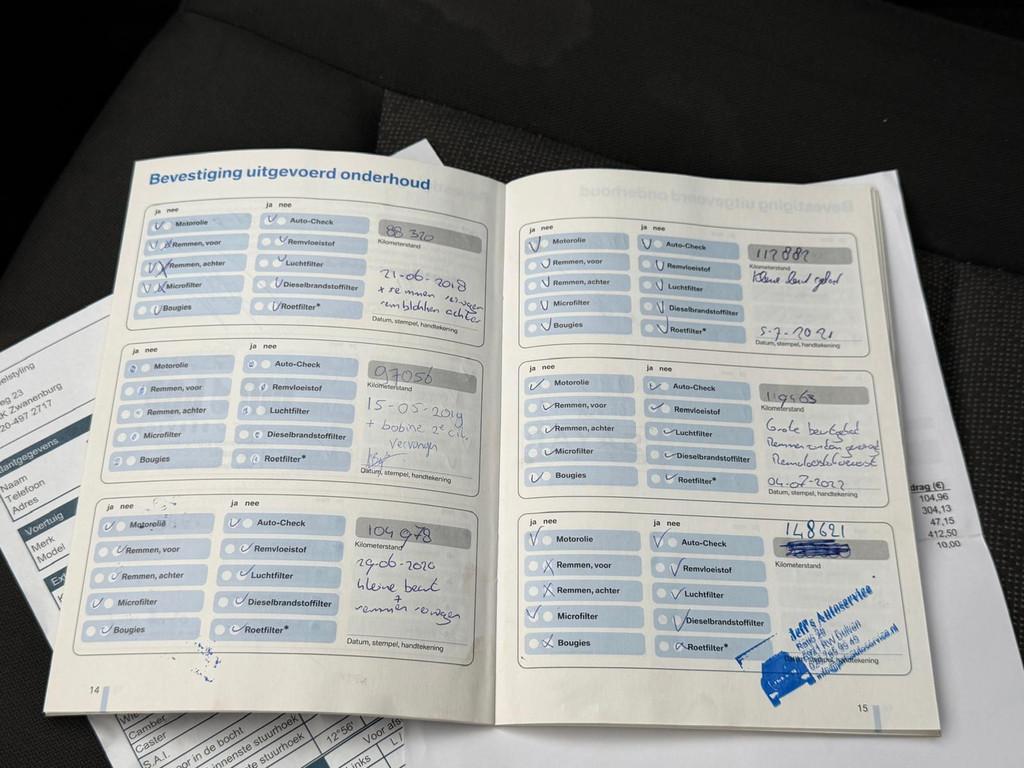 Bevestiging uitgevoerd onderhoud
ja nee
ja nee
Motorolie
Auto-Check
88 320
Kilometerstand
Remmen, voor
Remvloeistof
Remmen, achter
Luchtfilter
Microfilter
Dieselbrandstoffilter
Bougies
Roetfilter*
21-06-2018
+ remmen reinigen
remblokken achter
Datum, stempel, handtekening
ja nee
ja nee
Motorolie
Auto-Check
97056
Kilometerstand
Remmen, voor
Remvloeistof
Remmen, achter
Luchtfilter
Microfilter
Dieselbrandstoffilter
Bougies
Roetfilter*
15-05-2019
+ bobine 2e cil.
vervangen
Datum, stempel, handtekening
ja nee
ja nee
Motorolie
Auto-Check
104978
Kilometerstand
Remmen, voor
Remvloeistof
Remmen, achter
Luchtfilter
Microfilter
Dieselbrandstoffilter
Bougies
Roetfilter*
29-06-2020
kleine beurt
+
remmen reinigen
Datum, stempel, handtekening
14
ja nee
ja nee
Motorolie
Auto-Check
112882
Kilometerstand
Remmen, voor
Remvloeistof
Remmen, achter
Luchtfilter
Microfilter
Dieselbrandstoffilter
Bougies
Roetfilter*
Kleine beurt gehad
5-7-2021
Datum, stempel, handtekening
ja nee
ja nee
Motorolie
Auto-Check
119463
Kilometerstand
Remmen, voor
Remvloeistof
Remmen, achter
Luchtfilter
Microfilter
Dieselbrandstoffilter
Bougies
Roetfilter*
Grote beurt gehad
04-07-2022
Datum, stempel, handtekening
ja nee
ja nee
Motorolie
Auto-Check
148621
Kilometerstand
Remmen, voor
Remvloeistof
Remmen, achter
Luchtfilter
Microfilter
Dieselbrandstoffilter
Bougies
Roetfilter*
Jeff's Autoservice
Datum, stempel, handtekening
15
elstyling
eg 23
K Zwanenburg
20-497 2717
lantgegevens
Naam
Telefoon
Adres
Voertuig
Merk
Model
Camber
Caster
S.A.I.
or in de bocht
nnenste stuurhoek
enste stuurhoek
12°56'
Voor afs
Links
drag (€)
104,96
304,13
47,15
412,50
10,00